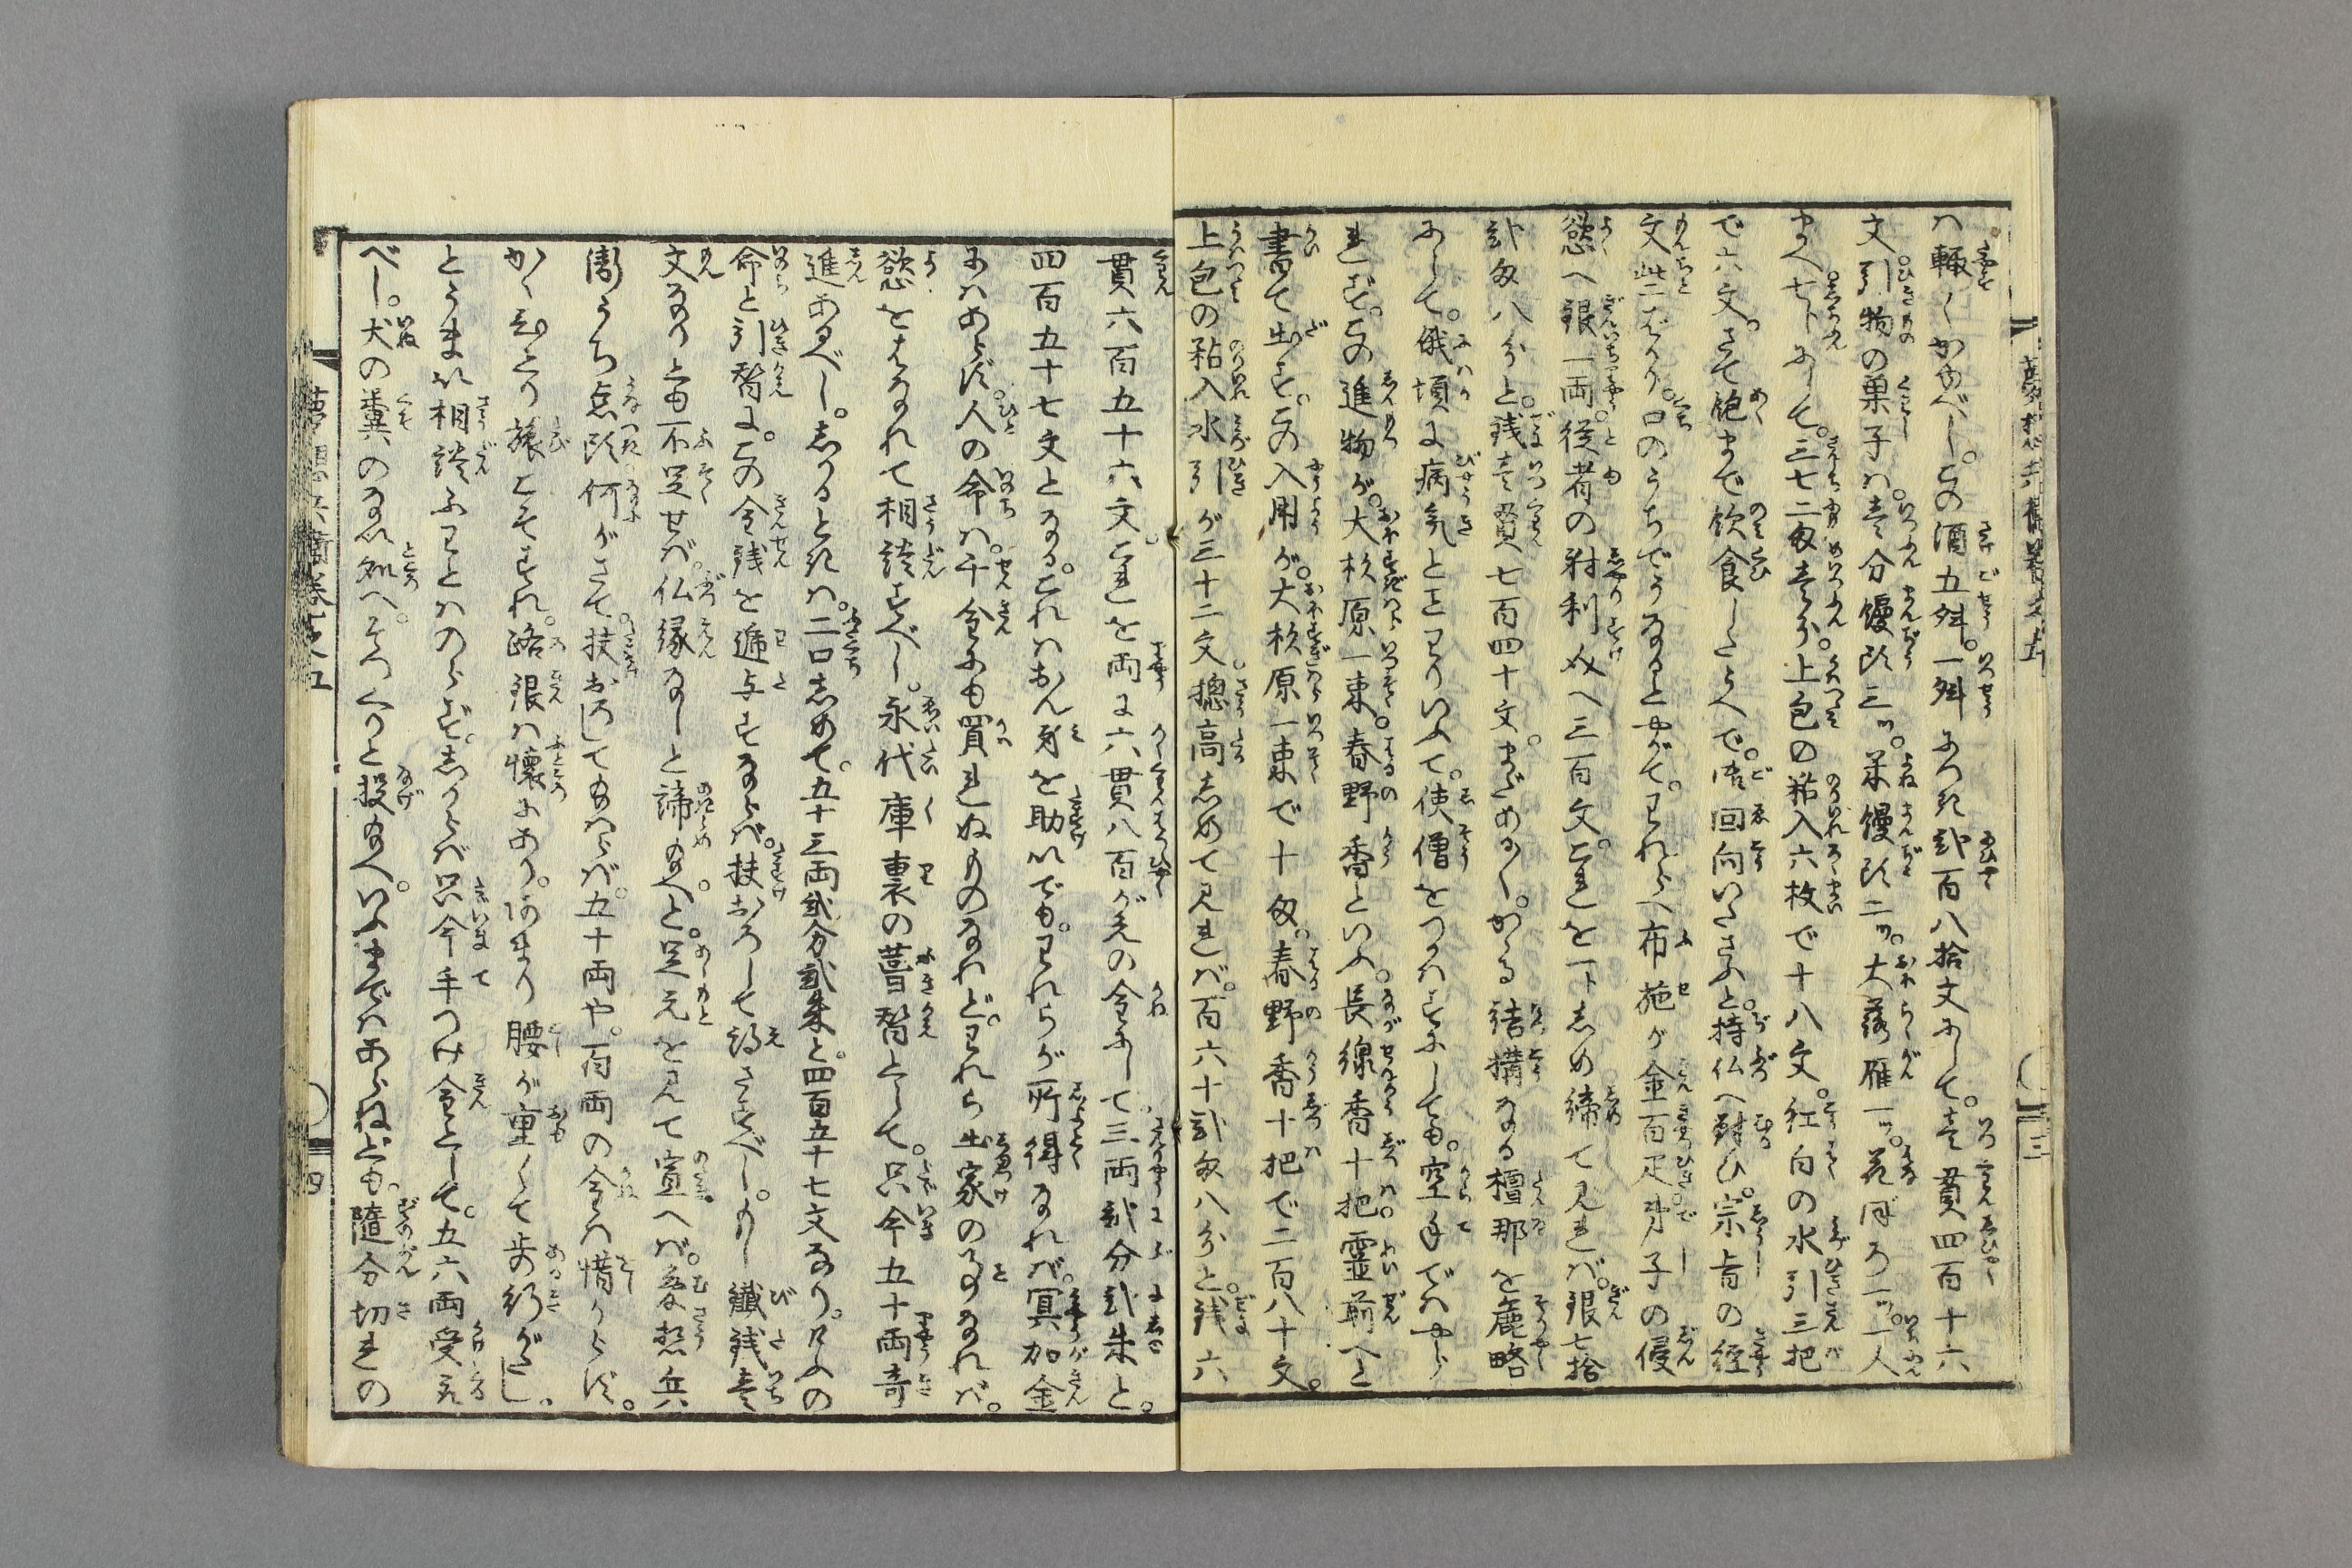 ハ輙くかゆべし。この酒五舛。一舛につき弐百八拾文にして。壱貫四百十六
文。引物の菓子ハ。壱分饅頭三ツ。米饅頭二ツ。大落雁一ツ。花ぼろ一ツ。一人
まへ七分にして。三七二匁壱分。上包の粘入六枚で十八文。紅白の水引三把
で六文。さて飽まで飲食したうへで。御回向いたさふと。持仏へ対ひ。宗旨の経
文此二ばかり。口のうちでうなるとやがて。われらへ布施が金百疋。弟子の侵
慾へ銀一両。従者の射利奴へ三百文。これを下しめ締て見れば。銀七拾
弐匁八分と。残壱貫七百四十文。まだある。かゝる結構なる檀那を麁略
にして。俄頃に病気とことわりいふて。使僧をつかはすにしても。空手ではやら
れず。この進物が。大杉原一束。春野香といふ。長線香十把。霊前へと
書て出す。この入用が。大杉原一束で十匁。春野香十把で二百八十文。
上包の粘入水引が三十二文。摠高しめて見れば。百六十弐匁八分と。残六
貫六百五十六文。これを両に六貫八百がえの金にして。三両弐分弐朱と。
四百五十七文となる。これハおん身を助いでも。われらが所得なれば。冥加金
にハあらず。人の命ハ。千金にも買れぬものなれど。われら出家の事なれば。
慾をはなれて相談すべし。永代庫裏の葺替として。只今五十両寄
進あるべし。しかるときハ。二口しめて。五十三両弐分弐朱と。四百五十七文なり。只人の
命と引替に。この金残を逓与すならば。扶おろして得さすべし。もし鐡残壱
文なりとも不足せば。仏縁なしと諦給へと。足元を見て宣へば。夢想兵
衛うち点頭。何がさて扶おろして給ハらば。五十両や。百両の金ハ惜からず。
かく独とり旅こそすれ。路銀ハ懐にあり。あまり腰が重くて歩行がたし。
とうまれ相談ふことハのらず。しからば只今手つけ金として。五六両受取
べし。犬の糞のなき処へ。そつくりと投給へ。いふまでハあらねども。随分切れの
夢想兵衛巻之五
三
四